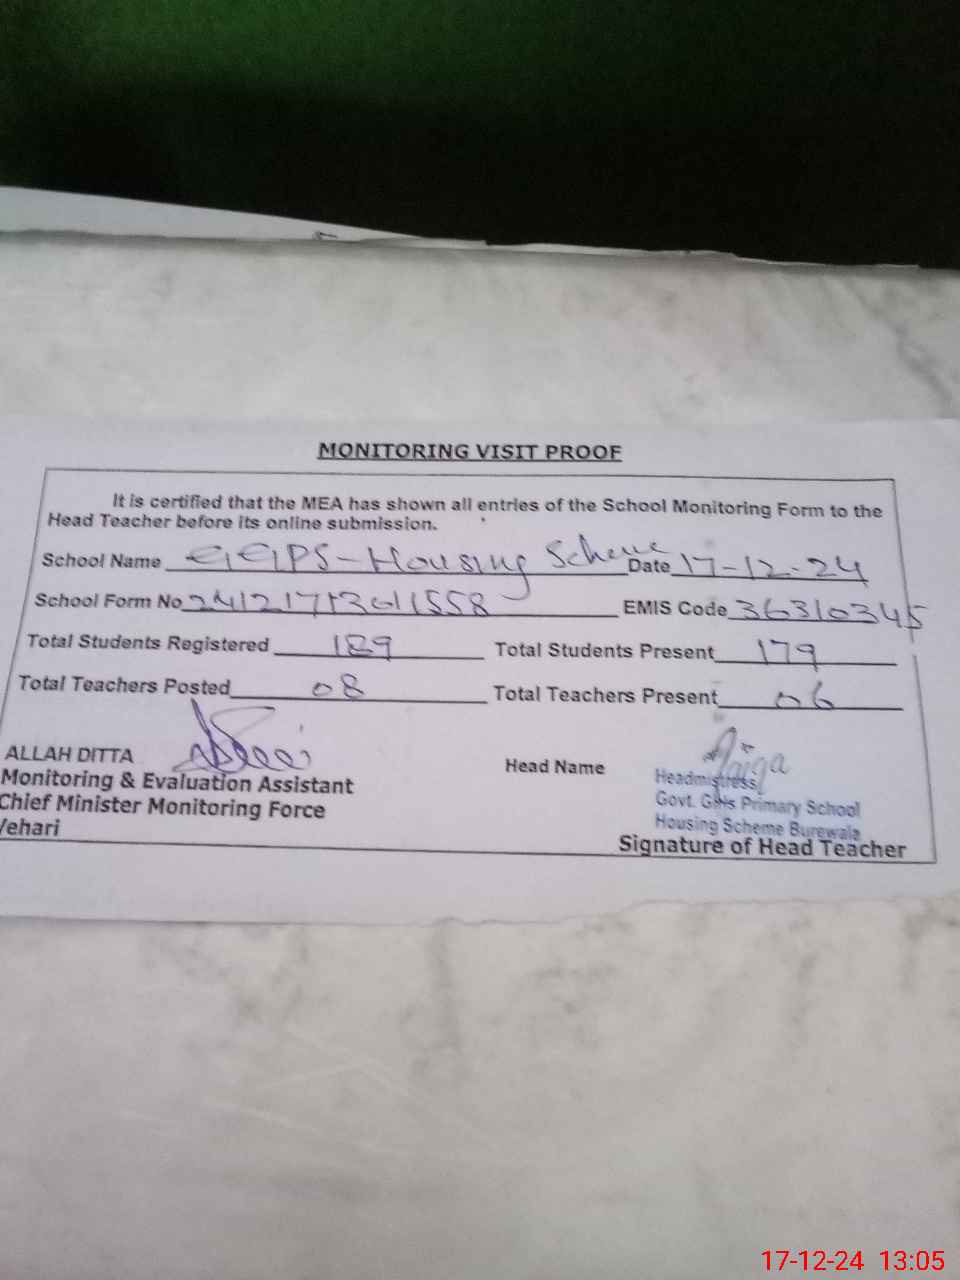 MONITORING VISIT PROOF
It is certified that the MEA has shown all entries of the School Monitoring Form to the
Head Teacher before its online submission.
School Name GGPS-Housing Scheme Date 17-12-24
School Form No EMIS Code 36310345
Total Students Registered 189 Total Students Present 179
Total Teachers Posted 08 Total Teachers Present 06
ALLAH DITTA
Monitoring & Evaluation Assistant
Chief Minister Monitoring Force
Vehari
Head Name
Headmistress
Govt. Girls Primary School
Housing Scheme Burewala
Signature of Head Teacher
17-12-24 13:05